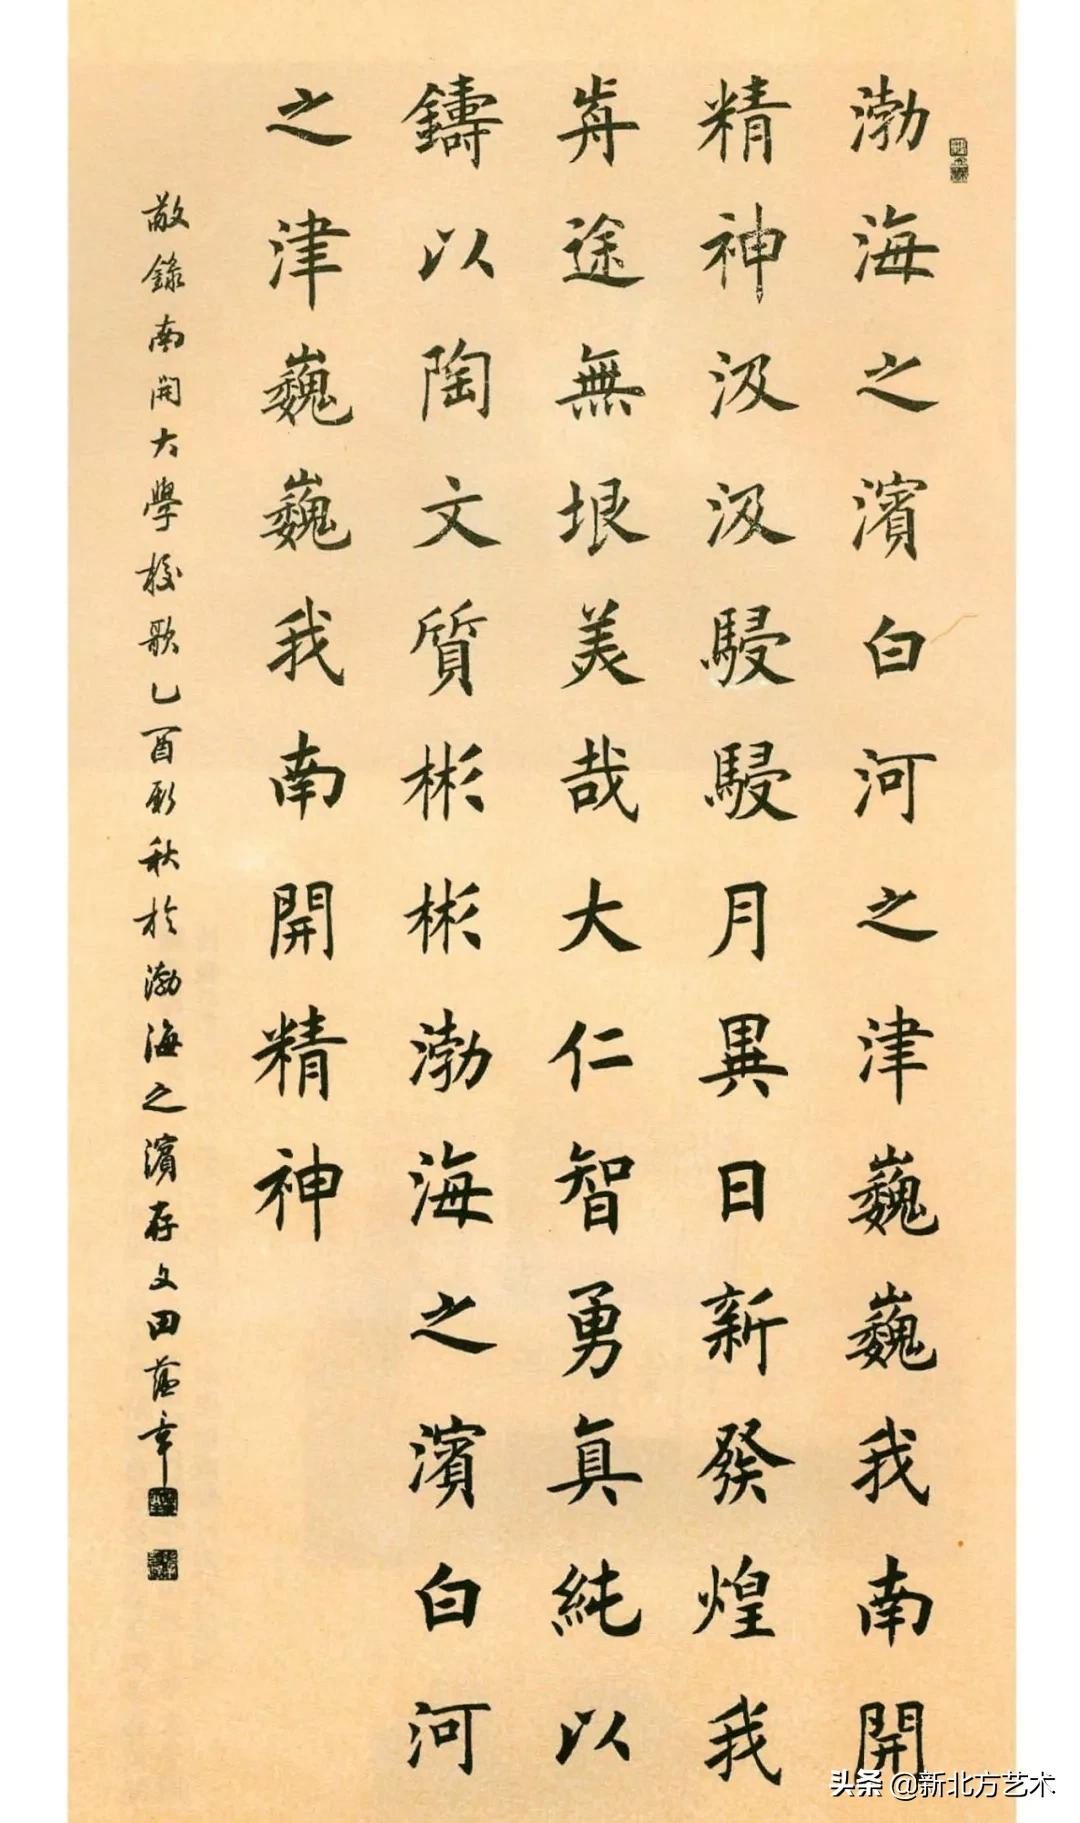 渤海之濱白河之津巍巍我南開
精神汲汲駸駸月異日新發煌我
歬途無垠美哉大仁智勇真純以
鑄以陶文質彬彬渤海之濱白河
之津巍巍我南開精神
敬錄南開大學校歌乙酉新秋於渤海之濱存文田蘊章
头条 @新北方艺术